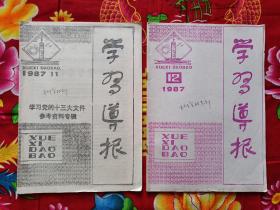 XUEXI DAOBAO
1987 11
学习党的十三大文件
参考资料专辑
XUE
XI
DAO
BAO
学习导报
XUEXI DAOBAO
12
1987
XUE
XI
DAO
BAO
学习导报